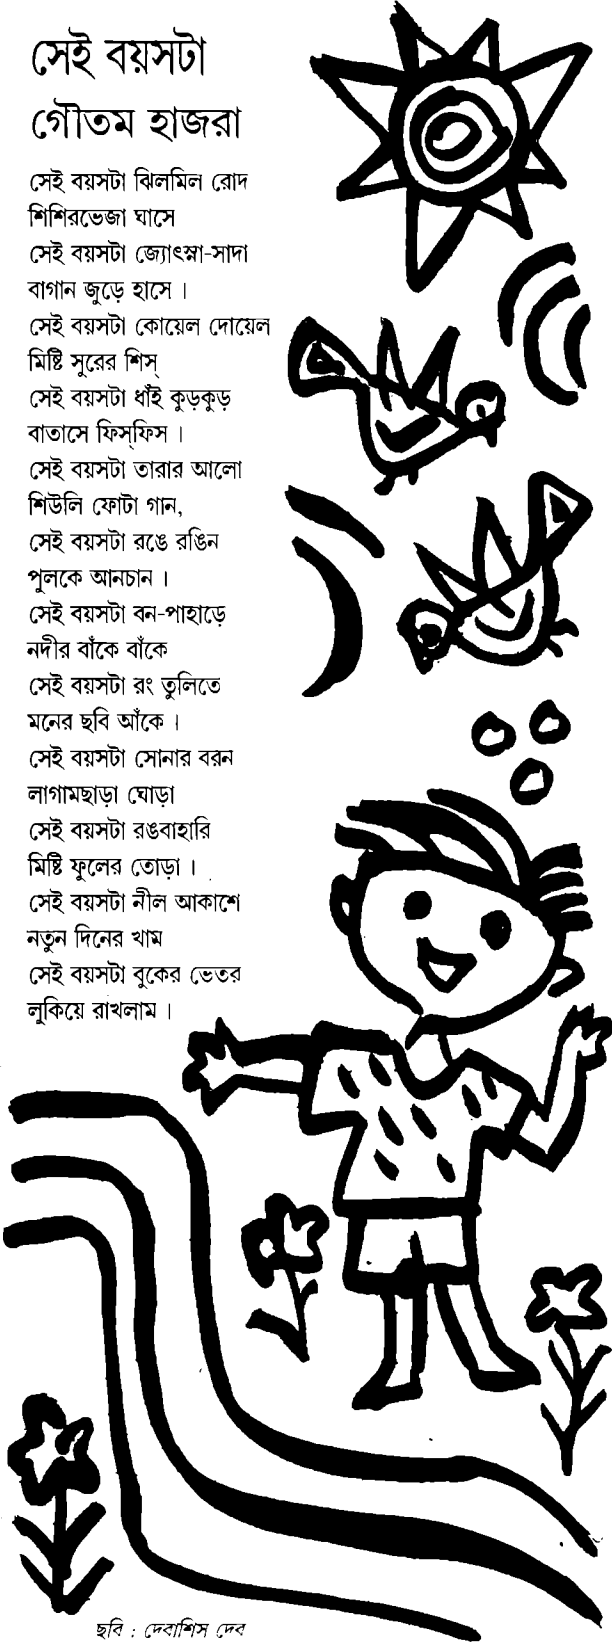 সেই বয়সটা
গৌতম হাজরা
সেই বয়সটা ঝিলমিল রোদ
শিশিরভেজা ঘাসে
সেই বয়সটা জ্যোৎস্না-সাদা
বাগান জুড়ে হাসে ।
সেই বয়সটা কোয়েল দোয়েল
মিষ্টি সুরের শিস্
সেই বয়সটা ধাঁই কুড়কুড়
বাতাসে ফিস্‌ফিস ।
সেই বয়সটা তারার আলো
শিউলি ফোটা গান,
সেই বয়সটা রঙে রঙিন
পুলকে আনচান ।
সেই বয়সটা বন-পাহাড়ে
নদীর বাঁকে বাঁকে
সেই বয়সটা রং তুলিতে
মনের ছবি আঁকে ।
সেই বয়সটা সোনার বরন
লাগামছাড়া ঘোড়া
সেই বয়সটা রঙবাহারি
মিষ্টি ফুলের তোড়া ।
সেই বয়সটা নীল আকাশে
নতুন দিনের খাম
সেই বয়সটা বুকের ভেতর
লুকিয়ে রাখলাম ।
ছবি : দেবাশিস দেব